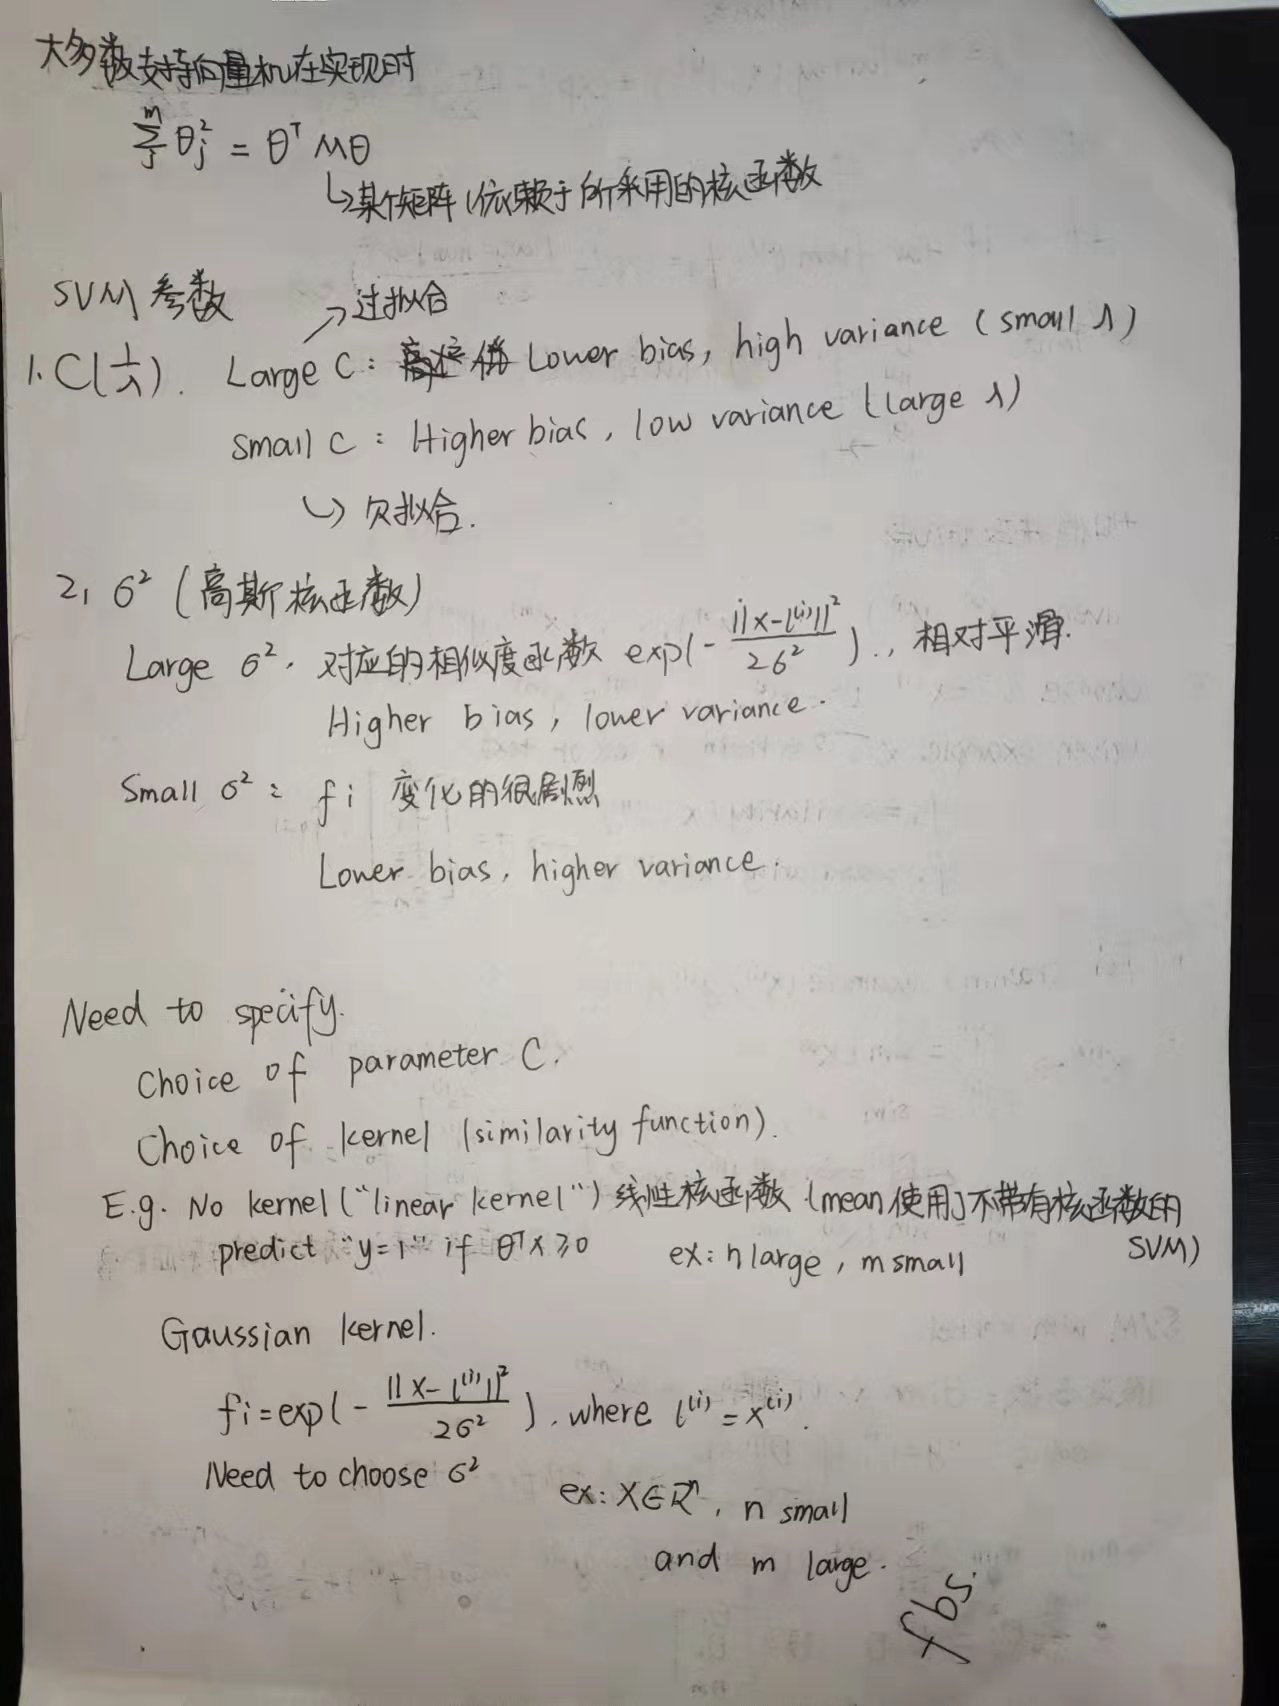 大多数支持向量机在实现时
∑_j^m θ_j² = θᵀMθ
↳某个矩阵(依赖于所采用的核函数
SVM参数
→过拟合
1. C(1/λ). Large C: Lower bias, high variance (small λ)
small C: Higher bias, low variance (large λ)
↳ 欠拟合.
2, σ² (高斯核函数)
Large σ². 对应的相似度函数 exp(-||x-l⁽ⁱ⁾||²/2σ²)., 相对平滑.
Higher bias, lower variance.
Small σ²: fi 变化的很剧烈
Lower bias, higher variance.
Need to specify.
Choice of parameter C.
Choice of kernel (similarity function).
E.g. No kernel ("linear kernel") 线性核函数 (mean使用]不带有核函数的
SVM)
predict "y=1" if θᵀx≥0 ex: n large, m small
Gaussian kernel.
fi=exp(-||x-l⁽ⁱ⁾||²/2σ²), where l⁽ⁱ⁾=x⁽ⁱ⁾.
Need to choose σ²
ex: X∈Rⁿ, n small
and m large.
fbs.